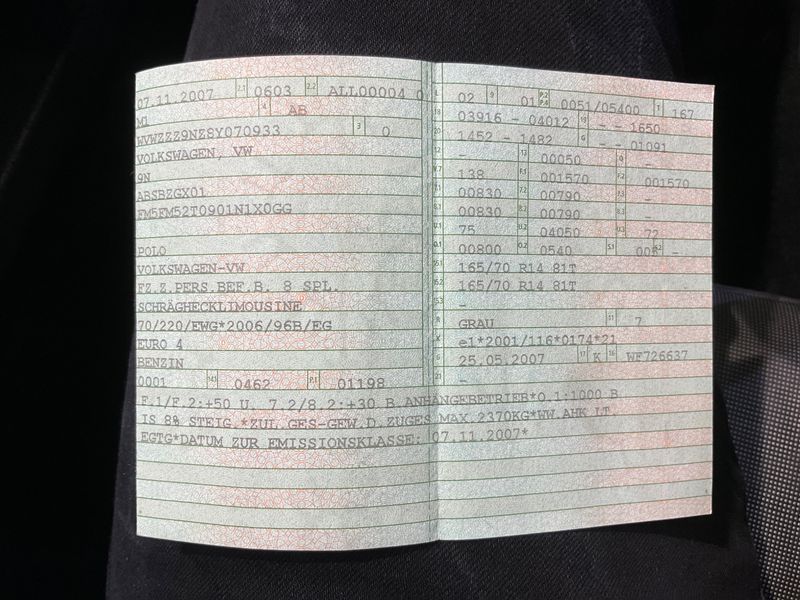 07.11.2007 2.1 0603 2.2 ALL00004 0
M1 4 AB
WVWZZZ9NZ8Y070933 3 0
VOLKSWAGEN, VW
9N
ABSBZGX01
FM5FM52T0901N1X0GG
POLO
VOLKSWAGEN-VW
FZ.Z.PERS.BEF.B. 8 SPL.
SCHRÄGHECKLIMOUSINE
70/220/EWG*2006/96B/EG
EURO 4
BENZIN
0001 14.1 0462 P.1 01198
L 02 9 01 P.2 P.4 0051/05400 T 167
18 03916 - 04012 19 - - 1650
20 1452 - 1482 G - - 01091
12 - 13 00050 Q -
V.7 138 F.1 001570 F.2 001570
7.1 00830 7.2 00790 7.3 -
8.1 00830 8.2 00790 8.3 -
U.1 75 U.2 04050 U.3 72
O.1 00800 O.2 0540 S.1 005 S.2 -
15.1 165/70 R14 81T
15.2 165/70 R14 81T
15.3 -
R GRAU 11 7
K e1*2001/116*0174*21
6 25.05.2007 17 K 16 WF726637
21 -
F.1/F.2:+50 U. 7.2/8.2:+30 B.ANHÄNGEBETRIEB*O.1:1000 B
IS 8% STEIG.*ZUL.GES-GEW.D.ZUGES.MAX.2370KG*WW.AHK LT.
EGTG*DATUM ZUR EMISSIONSKLASSE: 07.11.2007*